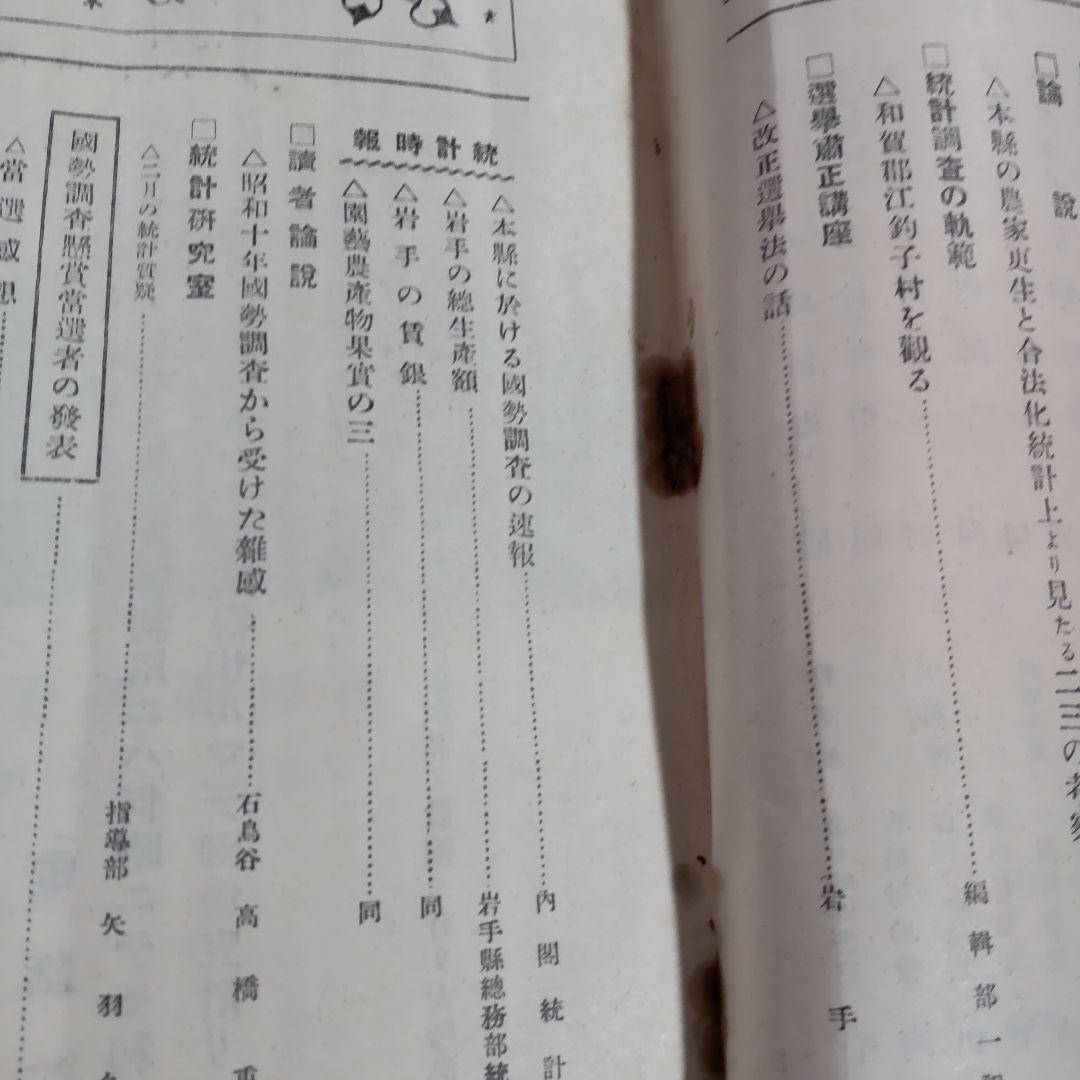 □論說
△本縣の農家更生と合法化統計上より見たる二三の考察
□統計調査の軌範
△和賀郡江釣子村を觀る……編輯部一
□選擧肅正講座
△改正選擧法の話……岩手
統計時報
△本縣に於ける國勢調査の速報……內閣統計
△岩手の總生產額……岩手縣總務部統
△岩手の賃銀……同
△園藝農產物果實の三……同
□讀者論說
△昭和十年國勢調査から受けた雜感……石鳥谷 高橋重
□統計硏究室
△二月の統計質疑……指導部 矢羽
國勢調査懸賞當選者の發表……
△當選感想……